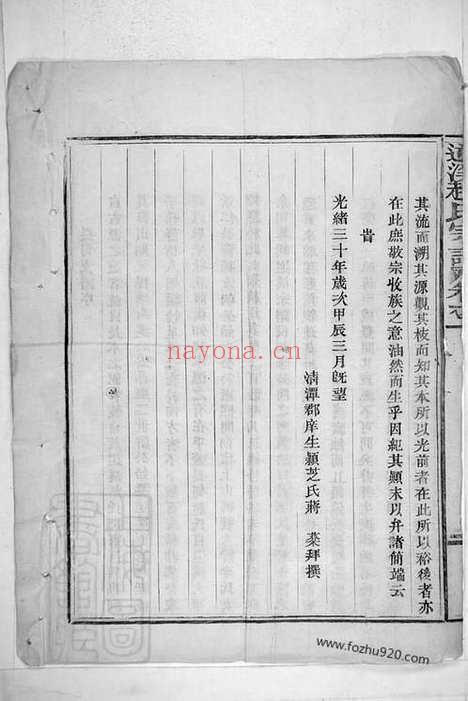 氏宗譜卷之一
其流而溯其源觀其枝而知其本所以光前者在此所以裕後者亦
在此庶敬宗收族之意油然而生乎因紀其顛末以弁諸簡端云
旹
光緒三十年歲次甲辰三月既望
清潭郡庠生穎芝氏蔣 棻拜撰
nayona.cn
www.fozhu920.com